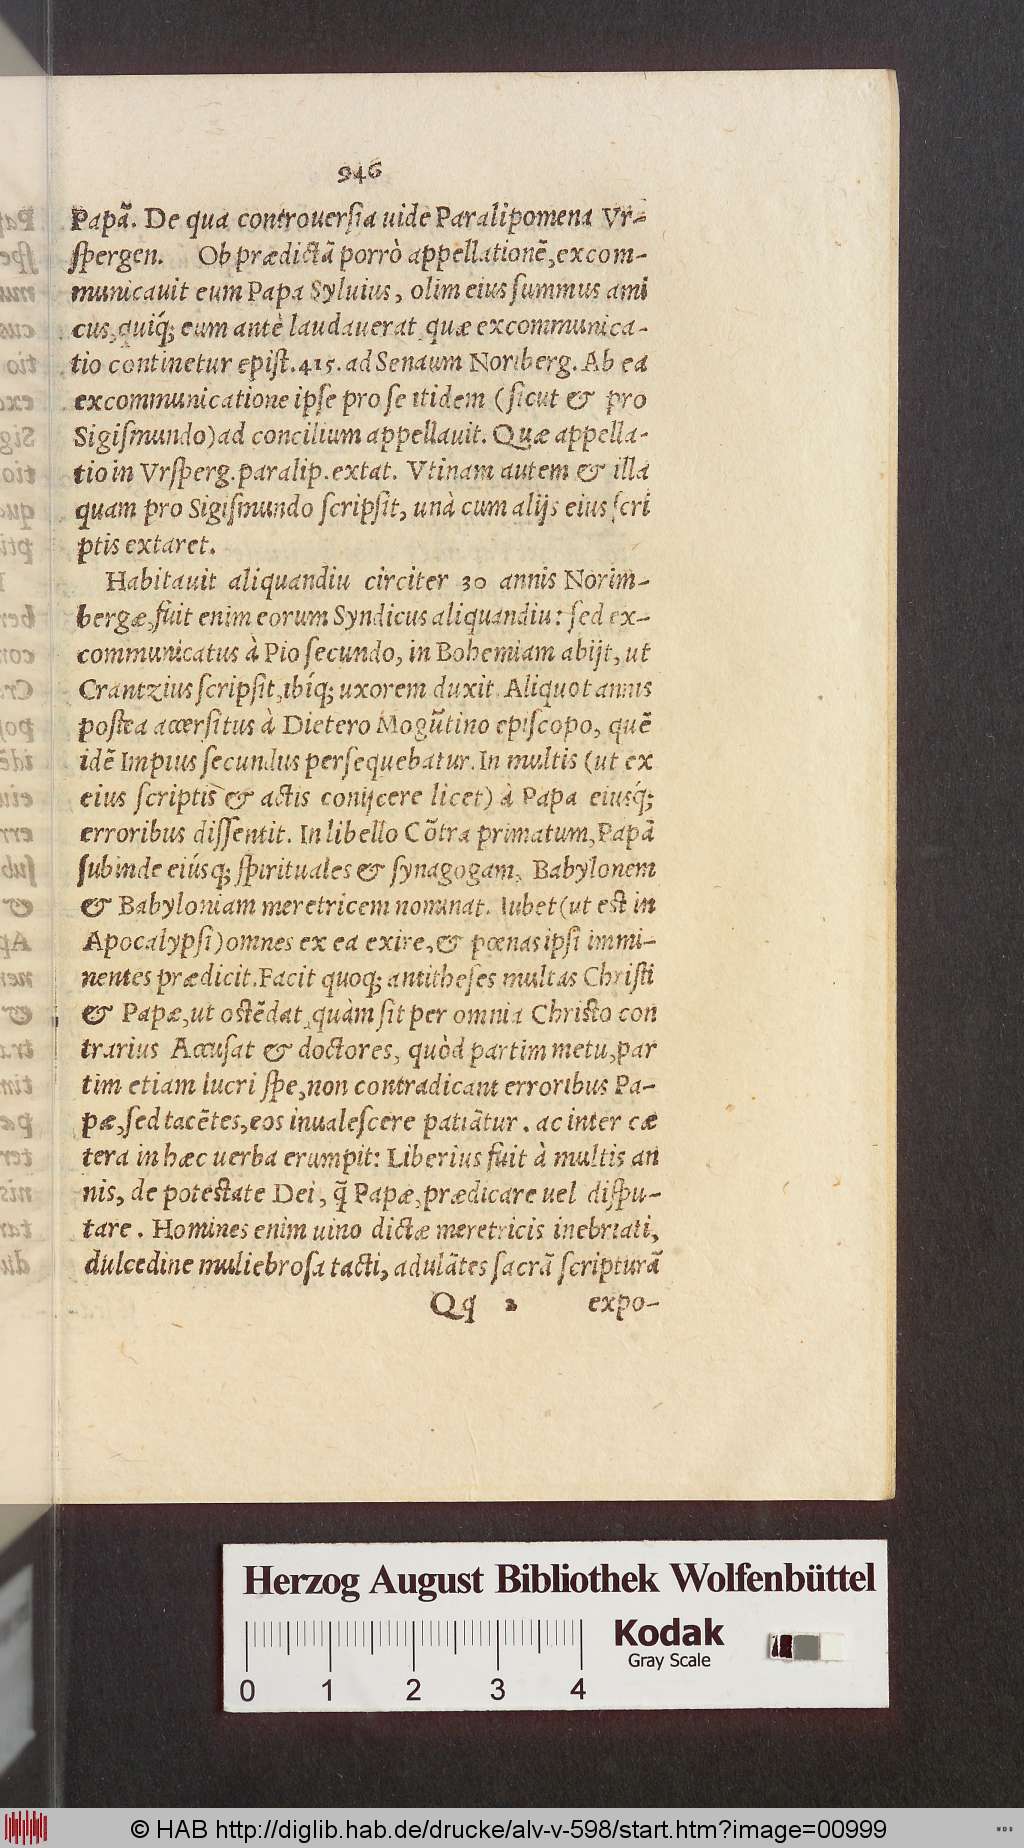 946
Papã. De qua controuersia uide Paralipomena Vr-
spergen. Ob prædictã porrò appellationẽ, excom-
municauit eum Papa Syluius, olim eius summus ami
cus, quiq́; eum antè laudauerat, quæ excommunica-
tio continetur epist. 415. ad Senatum Noriberg. Ab ea
excommunicatione ipse pro se itidem (sicut & pro
Sigismundo) ad concilium appellauit. Quæ appella-
tio in Vrsperg. paralip. extat. Vtinam autem & illa
quam pro Sigismundo scripsit, unà cum alijs eius scri
ptis extaret.
Habitauit aliquandiu circiter 30 annis Norim-
bergæ, fuit enim eorum Syndicus aliquandiu: sed ex-
communicatus à Pio secundo, in Bohemiam abijt, ut
Crantzius scripsit, ibíq; uxorem duxit. Aliquot annis
postea accersitus à Dietero Mogũtino episcopo, quẽ
idẽ Impius secundus persequebatur. In multis (ut ex
eius scriptis & actis conijcere licet) à Papa eiusq́;
erroribus dissentit. In libello Cõtra primatum, Papã
subinde eiúsq; spirituales & synagogam, Babylonem
& Babyloniam meretricem nominat. Iubet (ut est in
Apocalypsi) omnes ex ea exire, & pœnas ipsi immi-
nentes prædicit. Facit quoq; antitheses multas Christi
& Papæ, ut ostẽdat, quàm sit per omnia Christo con
trarius Accusat & doctores, quòd partim metu, par
tim etiam lucri spe, non contradicant erroribus Pa-
pæ, sed tacẽtes, eos inualescere patiãtur. ac inter cæ
tera in hæc uerba erumpit: Liberius fuit à multis an
nis, de potestate Dei, q̃ Papæ, prædicare uel dispu-
tare. Homines enim uino dictæ meretricis inebriati,
dulcedine muliebrosa tacti, adulãtes sacrã scripturã
Qq 2 expo-
Herzog August Bibliothek Wolfenbüttel
Kodak
Gray Scale
0 1 2 3 4
© HAB http://diglib.hab.de/drucke/alv-v-598/start.htm?image=00999